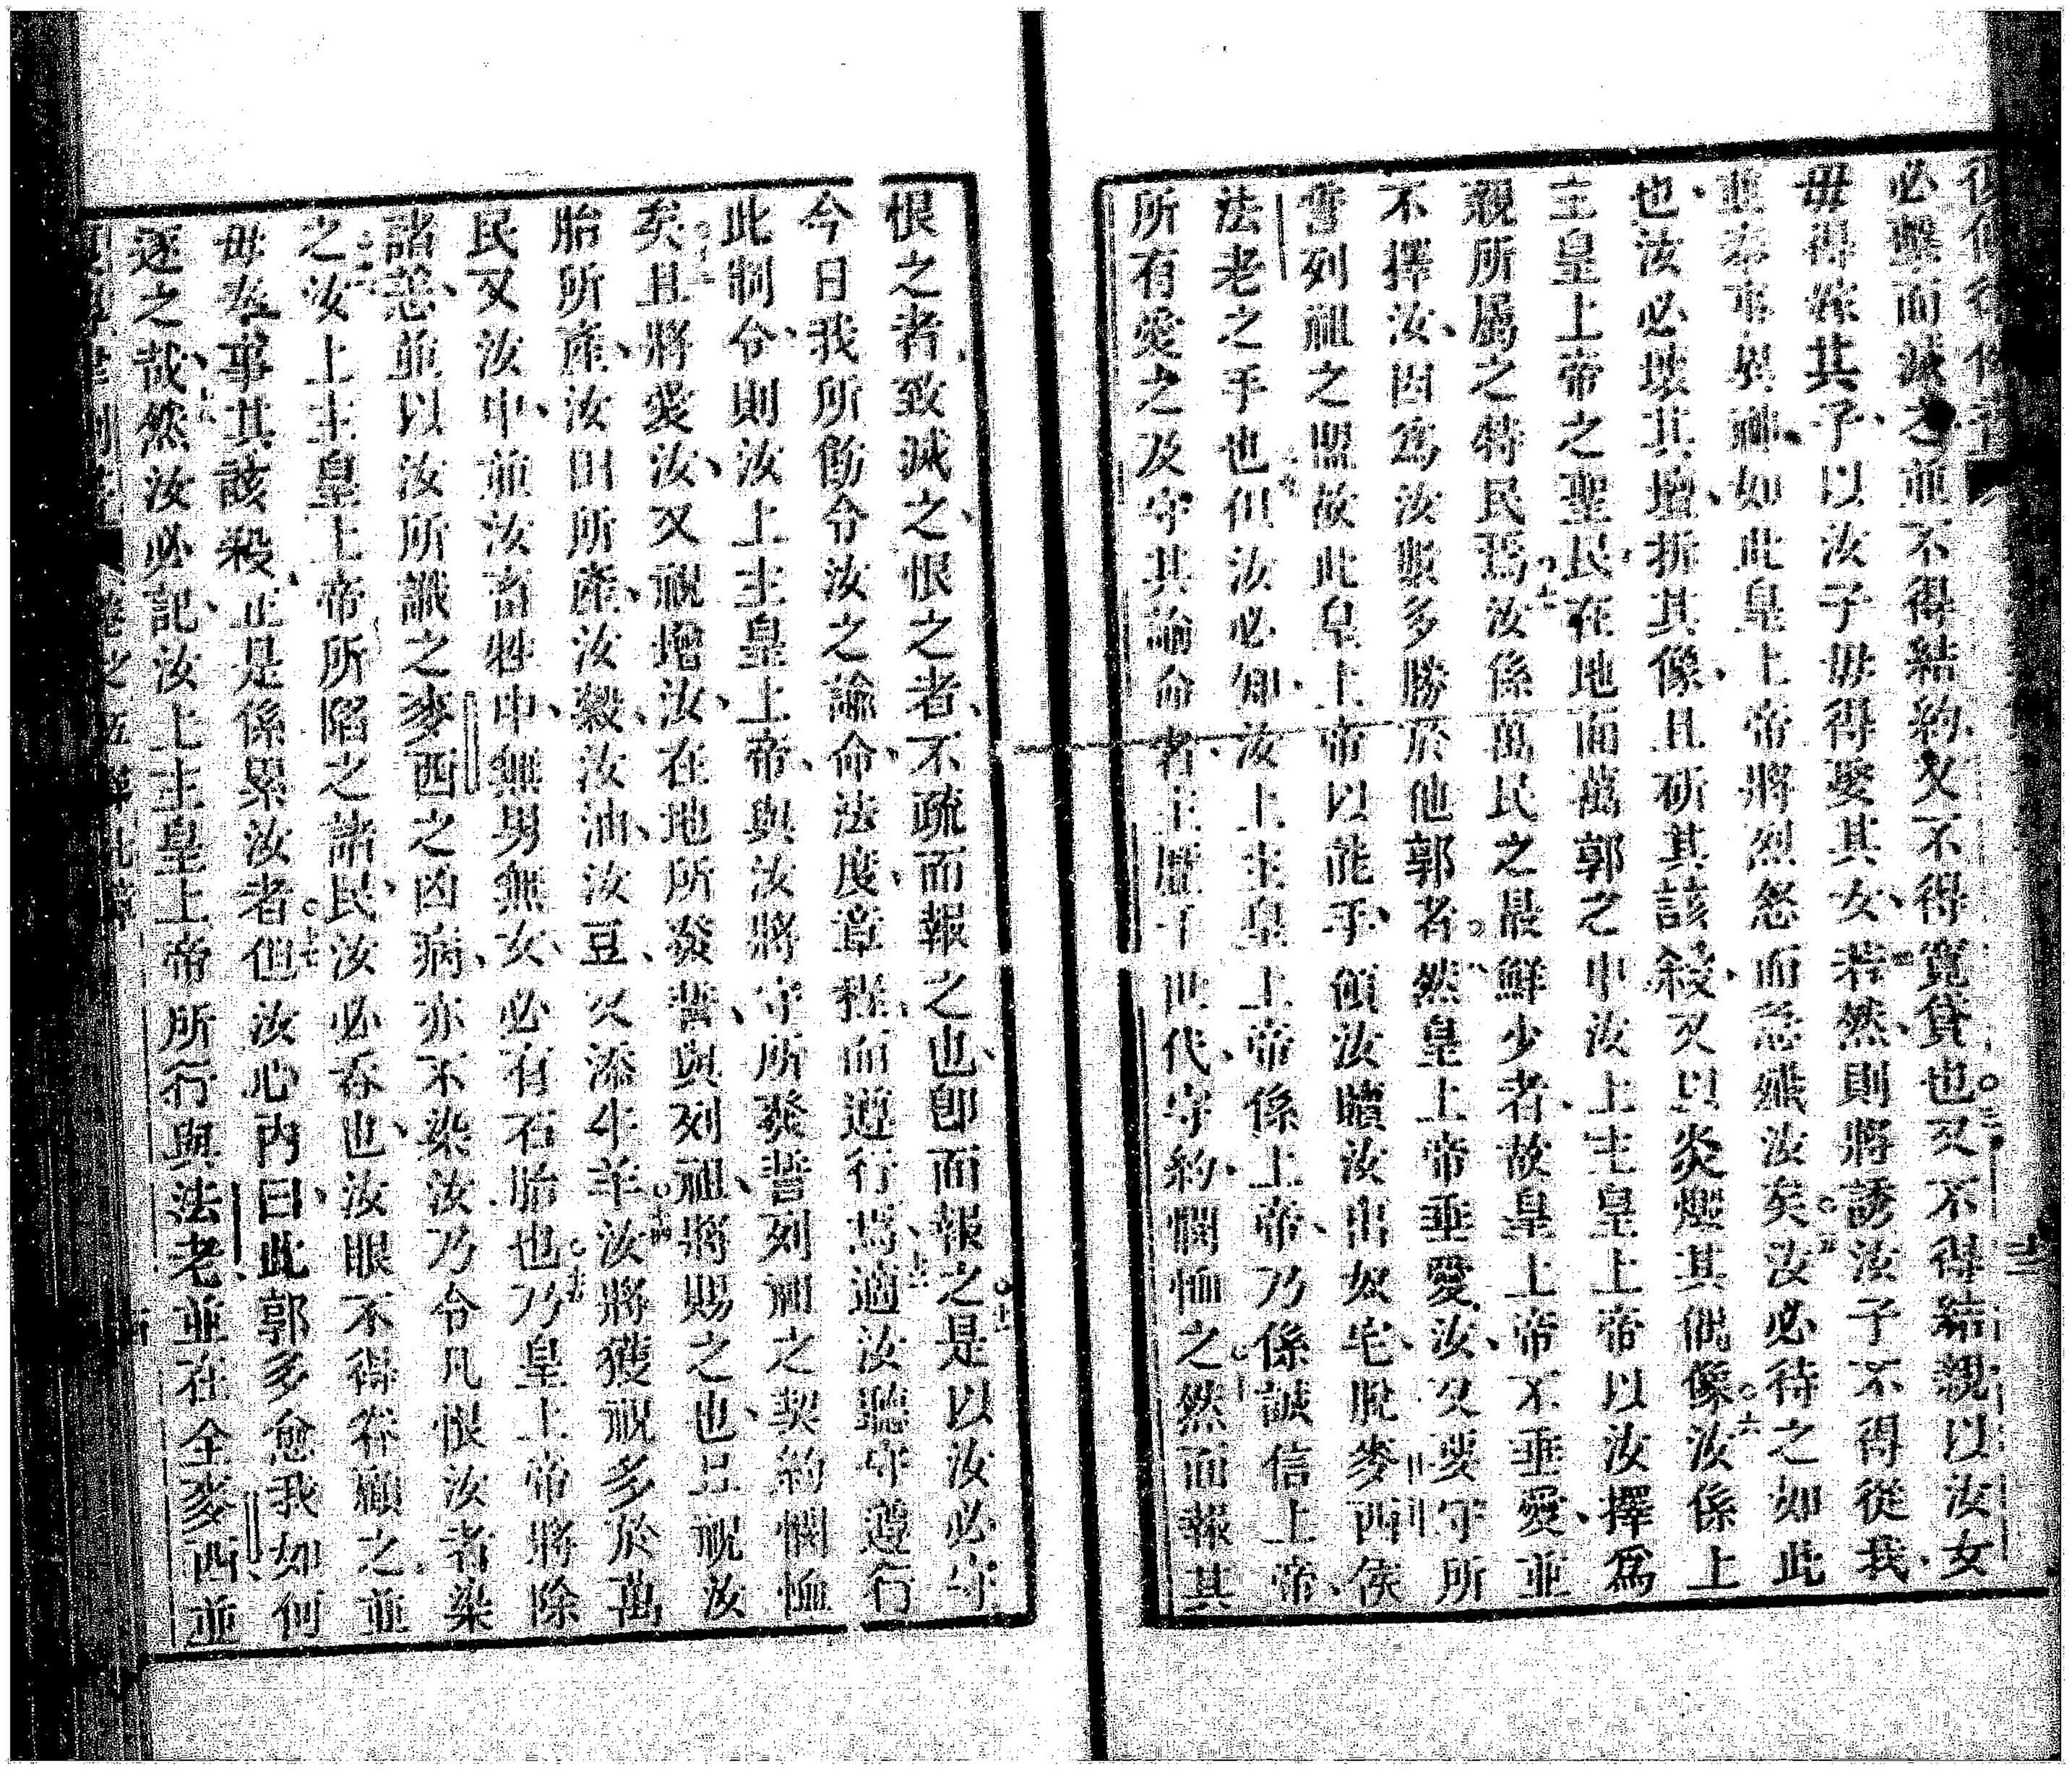 必擊而滅之並不得結約又不得寬貸也○三又不得結親以汝女
毋得嫁其子以汝子毋得娶其女若然則將誘汝子不得從我
並奉事異神如此皇上帝將烈怒而急殲汝矣○五汝必待之如此
也汝必壞其壇折其像且斫其該殺又以炎燬其偶像○六汝係上
主皇上帝之聖民在地面萬郭之中汝上主皇上帝以汝擇爲
親所屬之特民焉○七汝係萬民之最鮮少者故皇上帝不垂愛並
不擇汝因爲汝衆多勝於他郭者○八然皇上帝垂愛汝又要守所
誓列祖之盟故此皇上帝以能手傾汝贖汝出奴宅脫麥西侯
法老之手也○九但汝必知汝上主皇上帝係上帝乃係誠信上帝
所有愛之及守其諭命者主厯千世代守約憫恤之○十然而報其
恨之者致滅之恨之者不疏而報之也卽面報之○十一是以汝必守
今日我所飭令汝之諭命法度章程而遵行焉○十二適汝聽守遵行
此制令則汝上主皇上帝與汝將守所發誓列祖之契約憫恤
矣○十三且將愛汝又祝增汝在地所發誓與列祖將賜之也且祝汝
胎所產汝田所產汝穀汝油汝豆又添牛羊○十四汝將獲祝多於萬
民又汝中並汝畜牲中無男無女必有石胎也○十五乃皇上帝將除
諸恙並以汝所識之麥西之凶病亦不染汝乃令凡恨汝者染
之○十六汝上主皇上帝所陷之諸民汝必吞也汝眼不得眷顧之並
毋奉事其該殺正是係累汝者○十七但汝心內曰此郭多愈我如何
逐之哉○十八然汝必記汝上主皇上帝所行與法老並在全麥西並